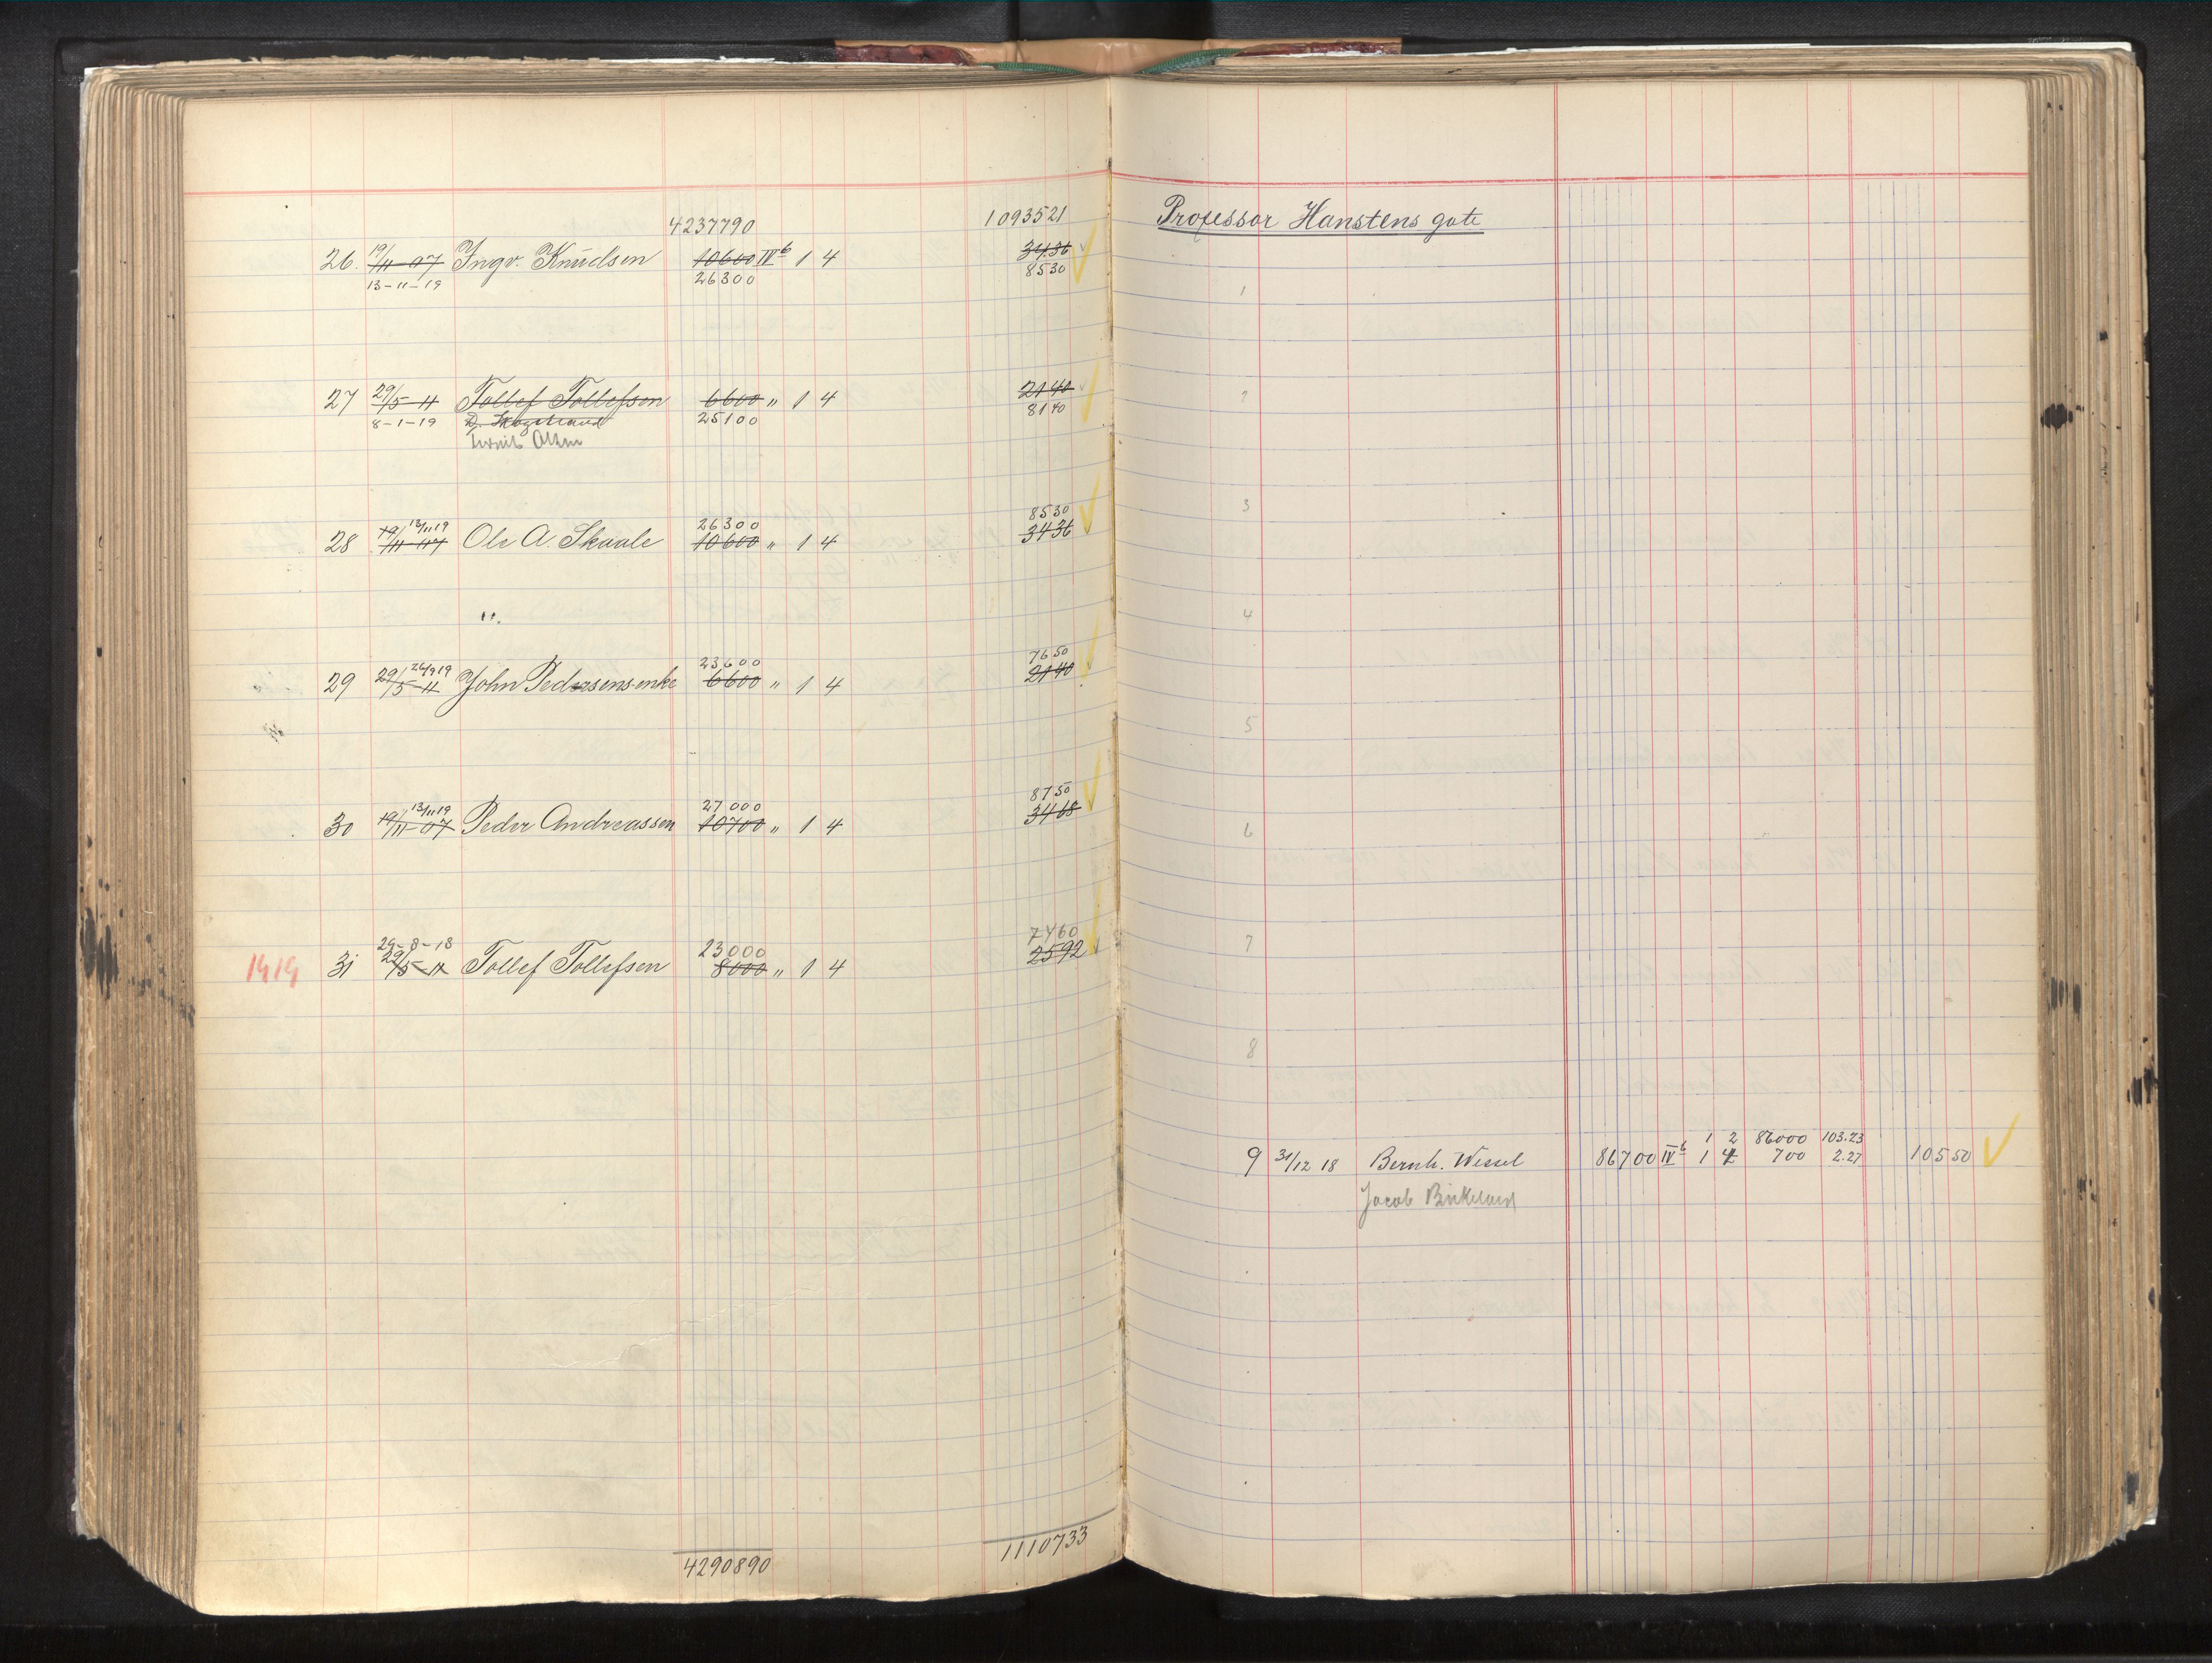 4237790 1093521
26. 19/11-07 Ingv. Knudsen 10600 IV6 1 4 3436
13-11-19 26300 8530
27 29/5-11 Tollef Tollefsen 6600 " 1 4 2140
8-1-19 D. Skogstrand 25100 8140
8530
13/11 19 26300
28 19/11-07 Ole A. Skaale 10600 " 1 4 3436
".
26/9 19 23600 7650
29 29/5-11 John Pedersens enke 6600 " 1 4 2140
13/11 19 27000 8750
30 19/11-07 Peder Andreassen 10700 " 1 4 3468
29-8-18 23000 7460
1919 31 29/5-11 Tollef Tollefsen 8000 " 1 4 2592
4290890 1110733
Professor Hanstens gate
1
2
3
4
5
6
7
8
1 2 86000 103.23
9 31/12 18 Bernh. Wessel 86700 IV6 1 4 700 2.27 10550
Jacob Birkeland